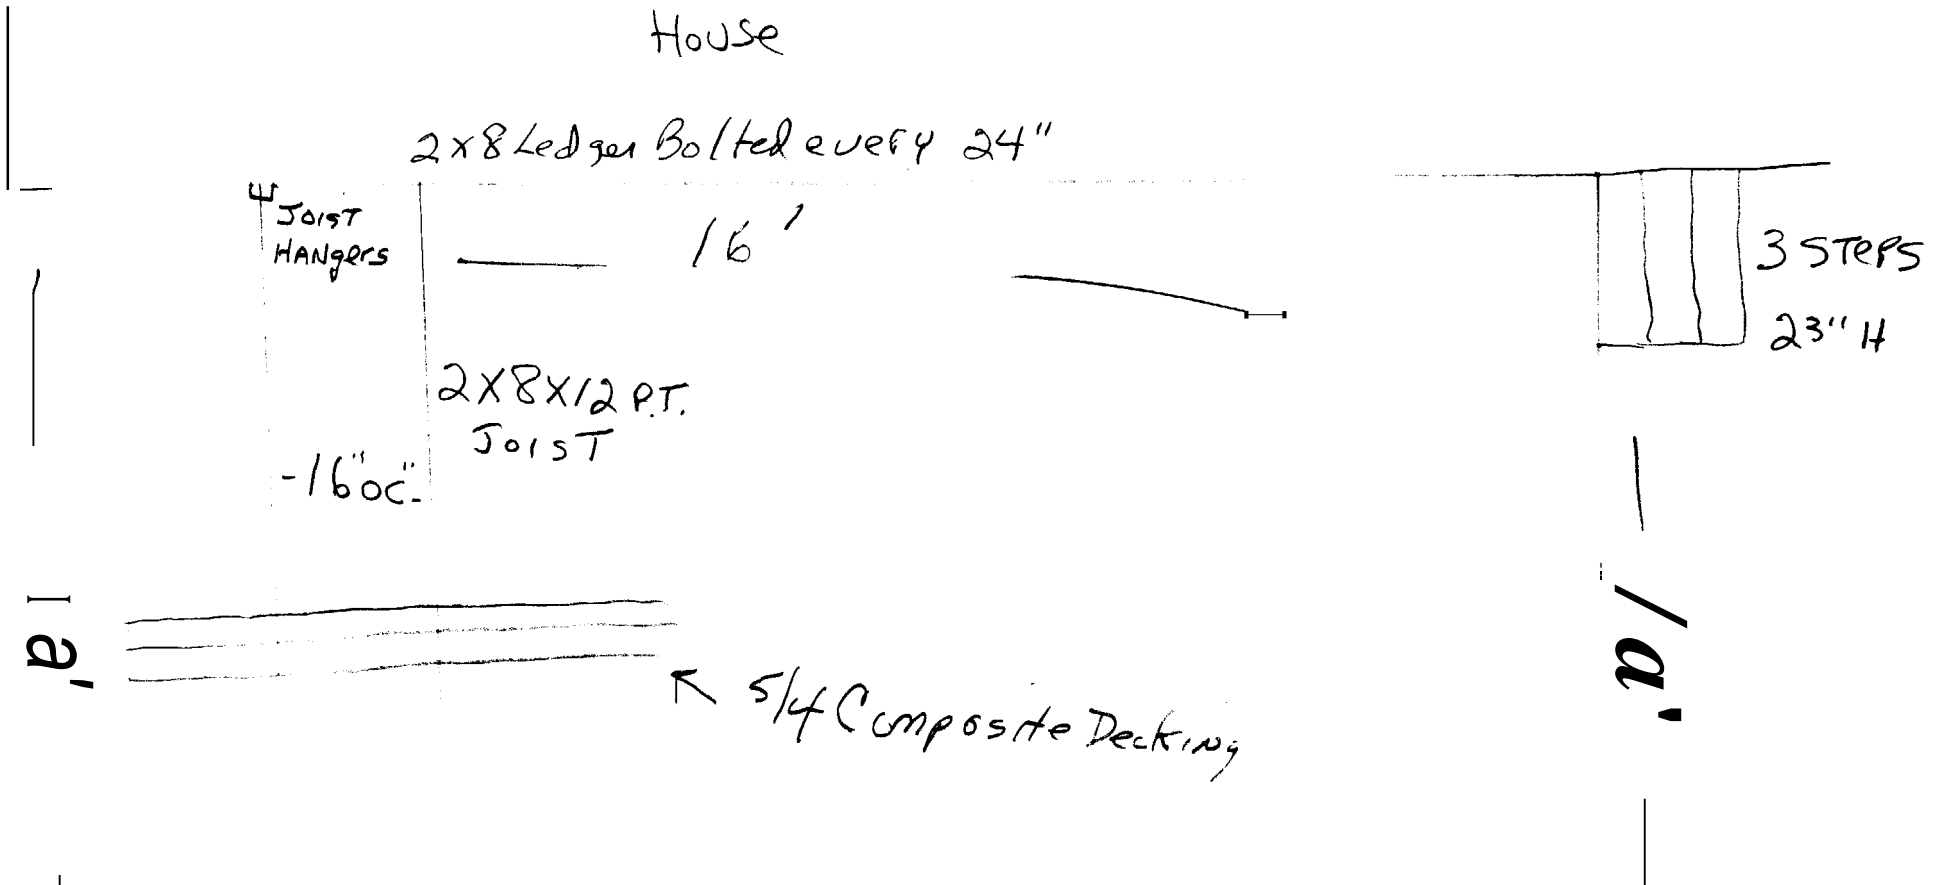 House
2x8 Ledger Bolted every 24"
JOIST
HANgers
16'
3 STEPS
23" H
2X8X12 P.T.
JOIST
-16" OC"-
1a'
/a'
5/4 Composite Decking